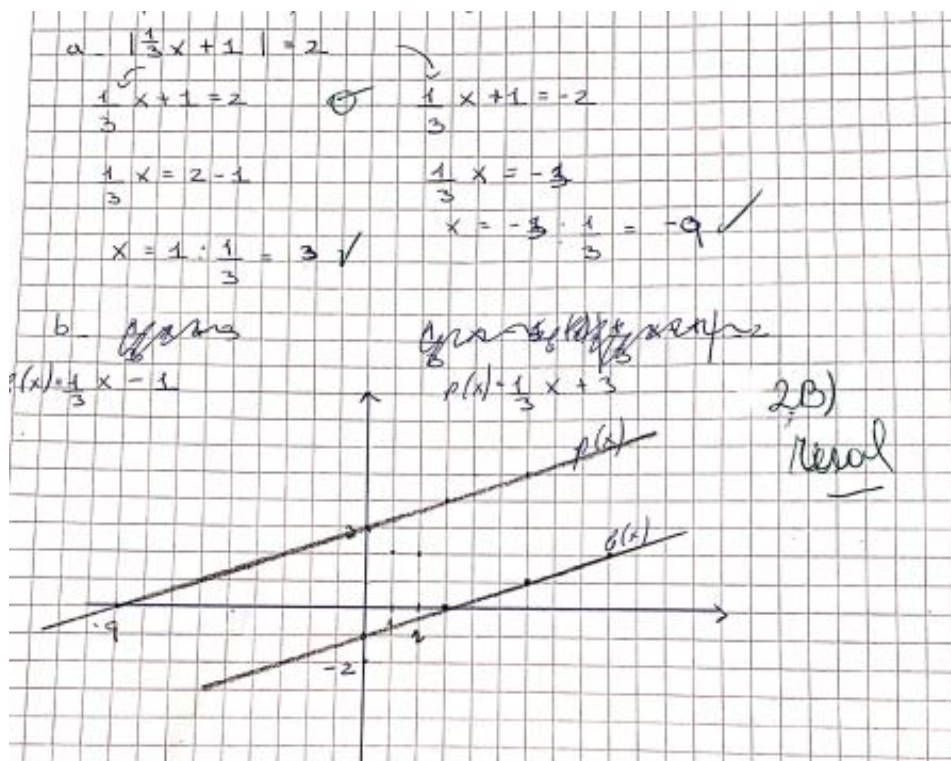 a- |1/3 x + 1| = 2
1/3 x + 1 = 2
1/3 x + 1 = -2
1/3 x = 2 - 1
1/3 x = -3
x = 1 : 1/3 = 3 ✓
x = -3 : 1/3 = -9 ✓
b-
(x) = 1/3 x - 1
p(x) = 1/3 x + 3
2B)
p(x)
3
b(x)
-9
1
2
-2